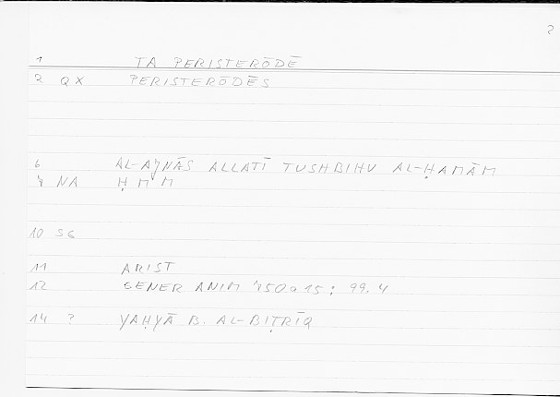 ?
1 TA PERISTERŌDĒ
2 QX PERISTERŌDĒS
6 AL-AJNĀS ALLATĪ TUSHBIHU AL-ḤAMĀM
NA Ḥ M M
10 SG
11 ARIST
12 GENER ANIM 750a15; 99.4
14 ? YAḤYĀ B. AL-BIṬRĪQ